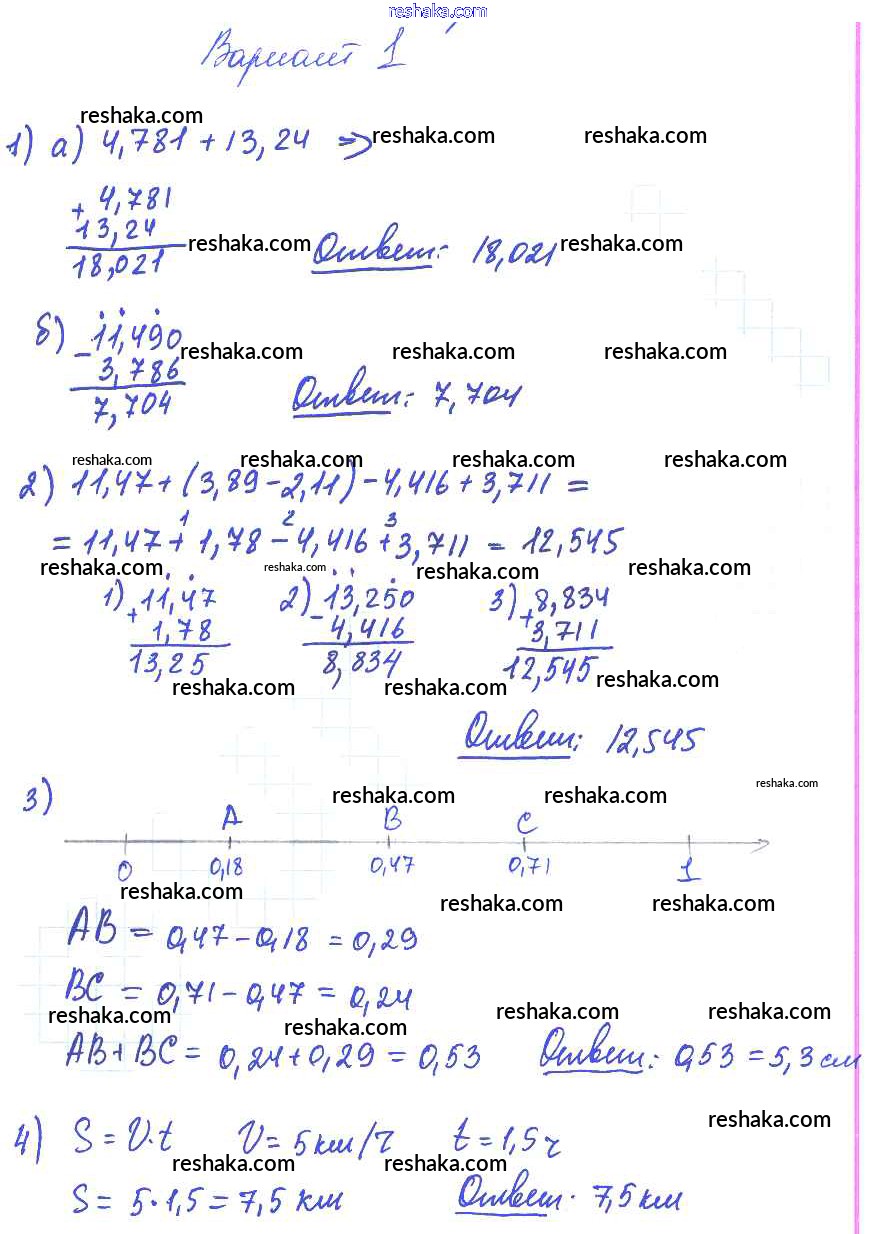 reshaka.com
Вариант 1
reshaka.com
1) а) 4,781 + 13,24 => reshaka.com reshaka.com
+ 4,781
13,24
18,021 reshaka.com Ответ: 18,021 reshaka.com
б) - 11,490
reshaka.com reshaka.com reshaka.com
3,786
7,704 Ответ: 7,704
reshaka.com reshaka.com reshaka.com reshaka.com
2) 11,47 + (3,89 - 2,11) - 4,416 + 3,711 =
1 2 3
= 11,47 + 1,78 - 4,416 + 3,711 = 12,545
reshaka.com reshaka.com reshaka.com reshaka.com
1) + 11,47 2) - 13,250 3) + 8,834
1,78 4,416 3,711
13,25 8,834 12,545 reshaka.com
reshaka.com reshaka.com
Ответ: 12,545
reshaka.com
3) reshaka.com reshaka.com
A B C
0 0,18 0,47 0,71 1
reshaka.com reshaka.com reshaka.com
AB = 0,47 - 0,18 = 0,29
BC = 0,71 - 0,47 = 0,24
reshaka.com reshaka.com reshaka.com
reshaka.com
AB + BC = 0,24 + 0,29 = 0,53 Ответ: 0,53 = 5,3 см
reshaka.com
4) S = V·t V = 5 км/ч t = 1,5 ч
reshaka.com reshaka.com
S = 5·1,5 = 7,5 км Ответ· 7,5 км